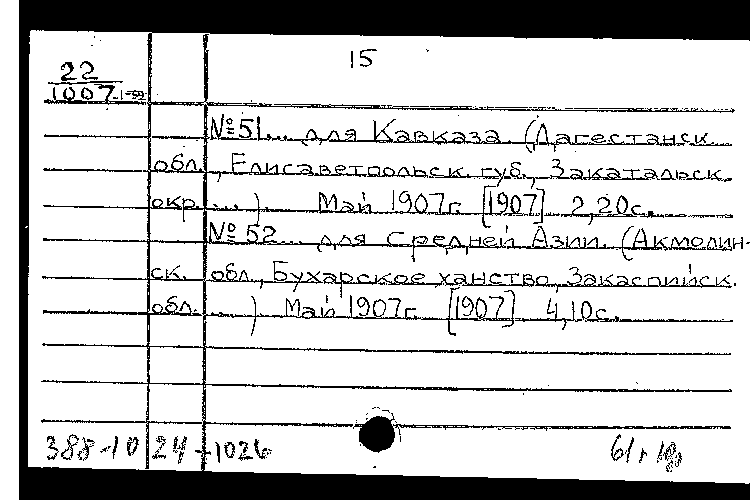 15
22
1007.1-52
№51... для Кавказа (Дагестанск.
обл., Елисаветпольск. губ., Закатальск.
окр. ...). Май 1907г. [1907] 2,20с.
№52... для Средней Азии. (Акмолин-
ск. обл., Бухарское ханство, Закаспийск.
обл. ...) Май 1907г. [1907] 4,10с.
388-10 24-1026
61г